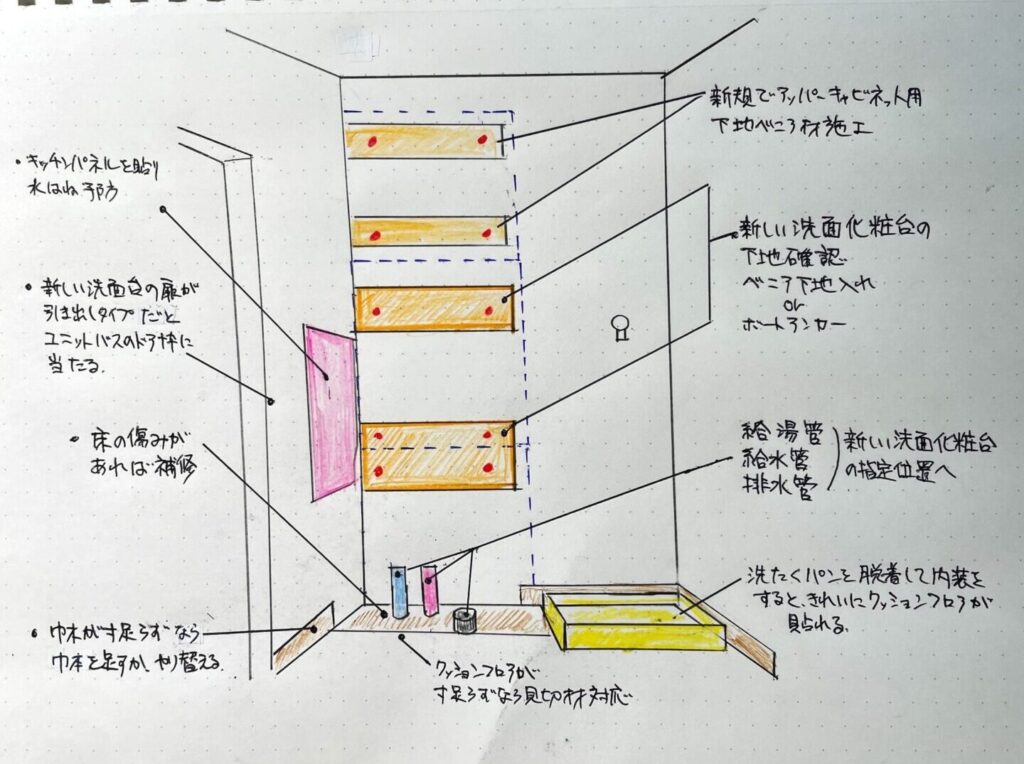 新規でアッパーキャビネット用
下地べニア材施工
・キッチンパネルを貼り
水はね予防
新しい洗面化粧台の
下地確認
ベニア下地入れ
or
ボードアンカー
・新しい洗面台の扉が
引き出しタイプだと
ユニットバスのドア枠に
当たる。
・床の傷みが
あれば補修
給湯管
給水管
排水管
新しい洗面化粧台
の指定位置へ
洗たくパンを脱着して内装を
すると、きれいにクッションフロアが
貼れる。
・巾木が寸足らずなら
巾木を足すか、やり替える。
クッションフロアが
寸足らずなら見切材対応